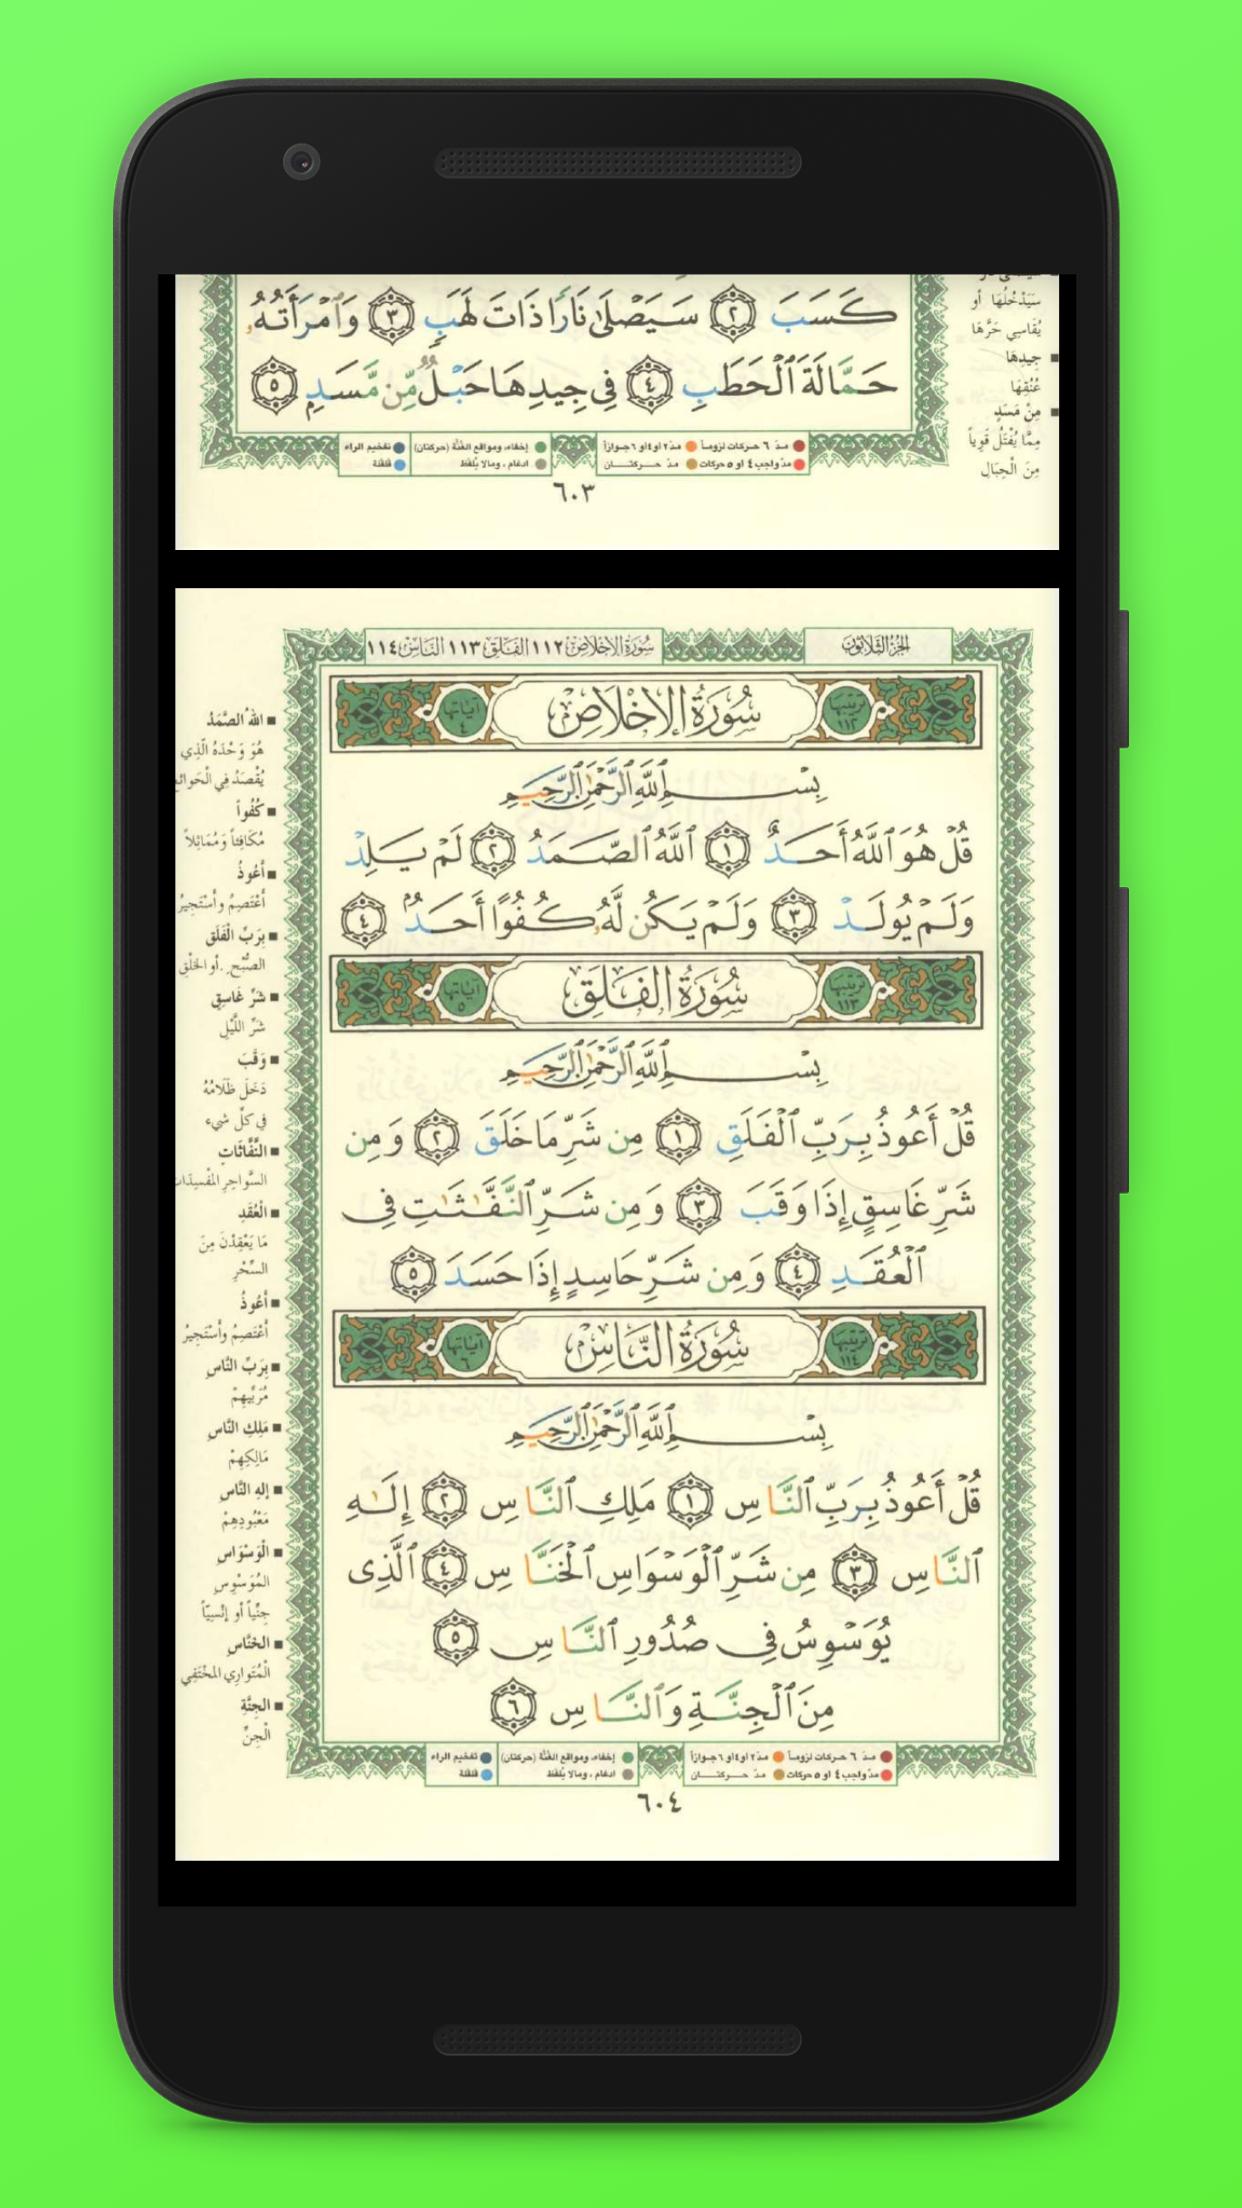 كَسَبَ ٢ سَيَصْلَىٰ نَارًا ذَاتَ لَهَبٍ ٣ وَٱمْرَأَتُهُۥ
حَمَّالَةَ ٱلْحَطَبِ ٤ فِى جِيدِهَا حَبْلٌ مِّن مَّسَدٍ ٥
سَيَدْخُلُهَا أو
يُقَاسِي حَرَّهَا
■ جِيدِهَا
عُنُقِهَا
■ مِنْ مَسَدٍ
مِمَّا يُفْتَلُ قَوِياً
مِنَ الْحِبَالِ
مدّ ٦ حركات لزوماً
مدّ ٢ أو ٤ أو ٦ جوازاً
إخفاء، ومواقع الغُنَّة (حركتان)
تفخيم الراء
مدّ واجب ٤ أو ٥ حركات
مدّ حركتان
ادغام، ومالا يُلفَظ
قلقلة
٦٠٣
الجزء الثلاثون
سُورَةُ الإخلاص ١١٢ الفَلَق ١١٣ النَّاس ١١٤
ترتيبها ١١٢
سُورَةُ الإِخْلَاصِ
آياتها ٤
بِسْمِ ٱللَّهِ ٱلرَّحْمَٰنِ ٱلرَّحِيمِ
قُلْ هُوَ ٱللَّهُ أَحَدٌ ١ ٱللَّهُ ٱلصَّمَدُ ٢ لَمْ يَلِدْ
وَلَمْ يُولَدْ ٣ وَلَمْ يَكُن لَّهُۥ كُفُوًا أَحَدٌۢ ٤
ترتيبها ١١٣
سُورَةُ الفَلَقِ
آياتها ٥
بِسْمِ ٱللَّهِ ٱلرَّحْمَٰنِ ٱلرَّحِيمِ
قُلْ أَعُوذُ بِرَبِّ ٱلْفَلَقِ ١ مِن شَرِّ مَا خَلَقَ ٢ وَمِن
شَرِّ غَاسِقٍ إِذَا وَقَبَ ٣ وَمِن شَرِّ ٱلنَّفَّٰثَٰتِ فِى
ٱلْعُقَدِ ٤ وَمِن شَرِّ حَاسِدٍ إِذَا حَسَدَ ٥
ترتيبها ١١٤
سُورَةُ النَّاسِ
آياتها ٦
بِسْمِ ٱللَّهِ ٱلرَّحْمَٰنِ ٱلرَّحِيمِ
قُلْ أَعُوذُ بِرَبِّ ٱلنَّاسِ ١ مَلِكِ ٱلنَّاسِ ٢ إِلَٰهِ
ٱلنَّاسِ ٣ مِن شَرِّ ٱلْوَسْوَاسِ ٱلْخَنَّاسِ ٤ ٱلَّذِى
يُوَسْوِسُ فِى صُدُورِ ٱلنَّاسِ ٥
مِنَ ٱلْجِنَّةِ وَٱلنَّاسِ ٦
■ اللهُ الصَّمَدُ
هُوَ وَحْدَهُ الَّذِي
يُقْصَدُ فِي الْحَوائج
■ كُفُواً
مُكَافِئاً وَمُمَاثِلاً
■ أَعُوذُ
أَعْتَصِمُ وأَسْتَجِيرُ
■ بِرَبِّ الْفَلَقِ
الصُّبْحِ. أو الخَلْقِ
■ شَرِّ غَاسِقٍ
شَرِّ اللَّيْلِ
■ وَقَبَ
دَخَلَ ظَلَامُهُ
في كلِّ شيء
■ النَّفَّاثَاتِ
السَّواحِرِ المُفْسِدَات
■ الْعُقَدِ
مَا يَعْقِدْنَ مِنَ
السِّحْرِ
■ أَعُوذُ
أَعْتَصِمُ وأَسْتَجِيرُ
■ بِرَبِّ النَّاسِ
مُرَبِّيهِمْ
■ مَلِكِ النَّاسِ
مَالِكِهِمْ
■ إلهِ النَّاسِ
مَعْبُودِهِمْ
■ الْوَسْوَاسِ
المُوَسْوِسِ
جِنِّياً أو إنْسِيّاً
■ الخنَّاسِ
الْمُتَوارِي المخْتَفِي
■ الجِنَّةِ
الْجِنِّ
مدّ ٦ حركات لزوماً
مدّ ٢ أو ٤ أو ٦ جوازاً
إخفاء، ومواقع الغُنَّة (حركتان)
تفخيم الراء
مدّ واجب ٤ أو ٥ حركات
مدّ حركتان
ادغام، ومالا يُلفَظ
قلقلة
٦٠٤